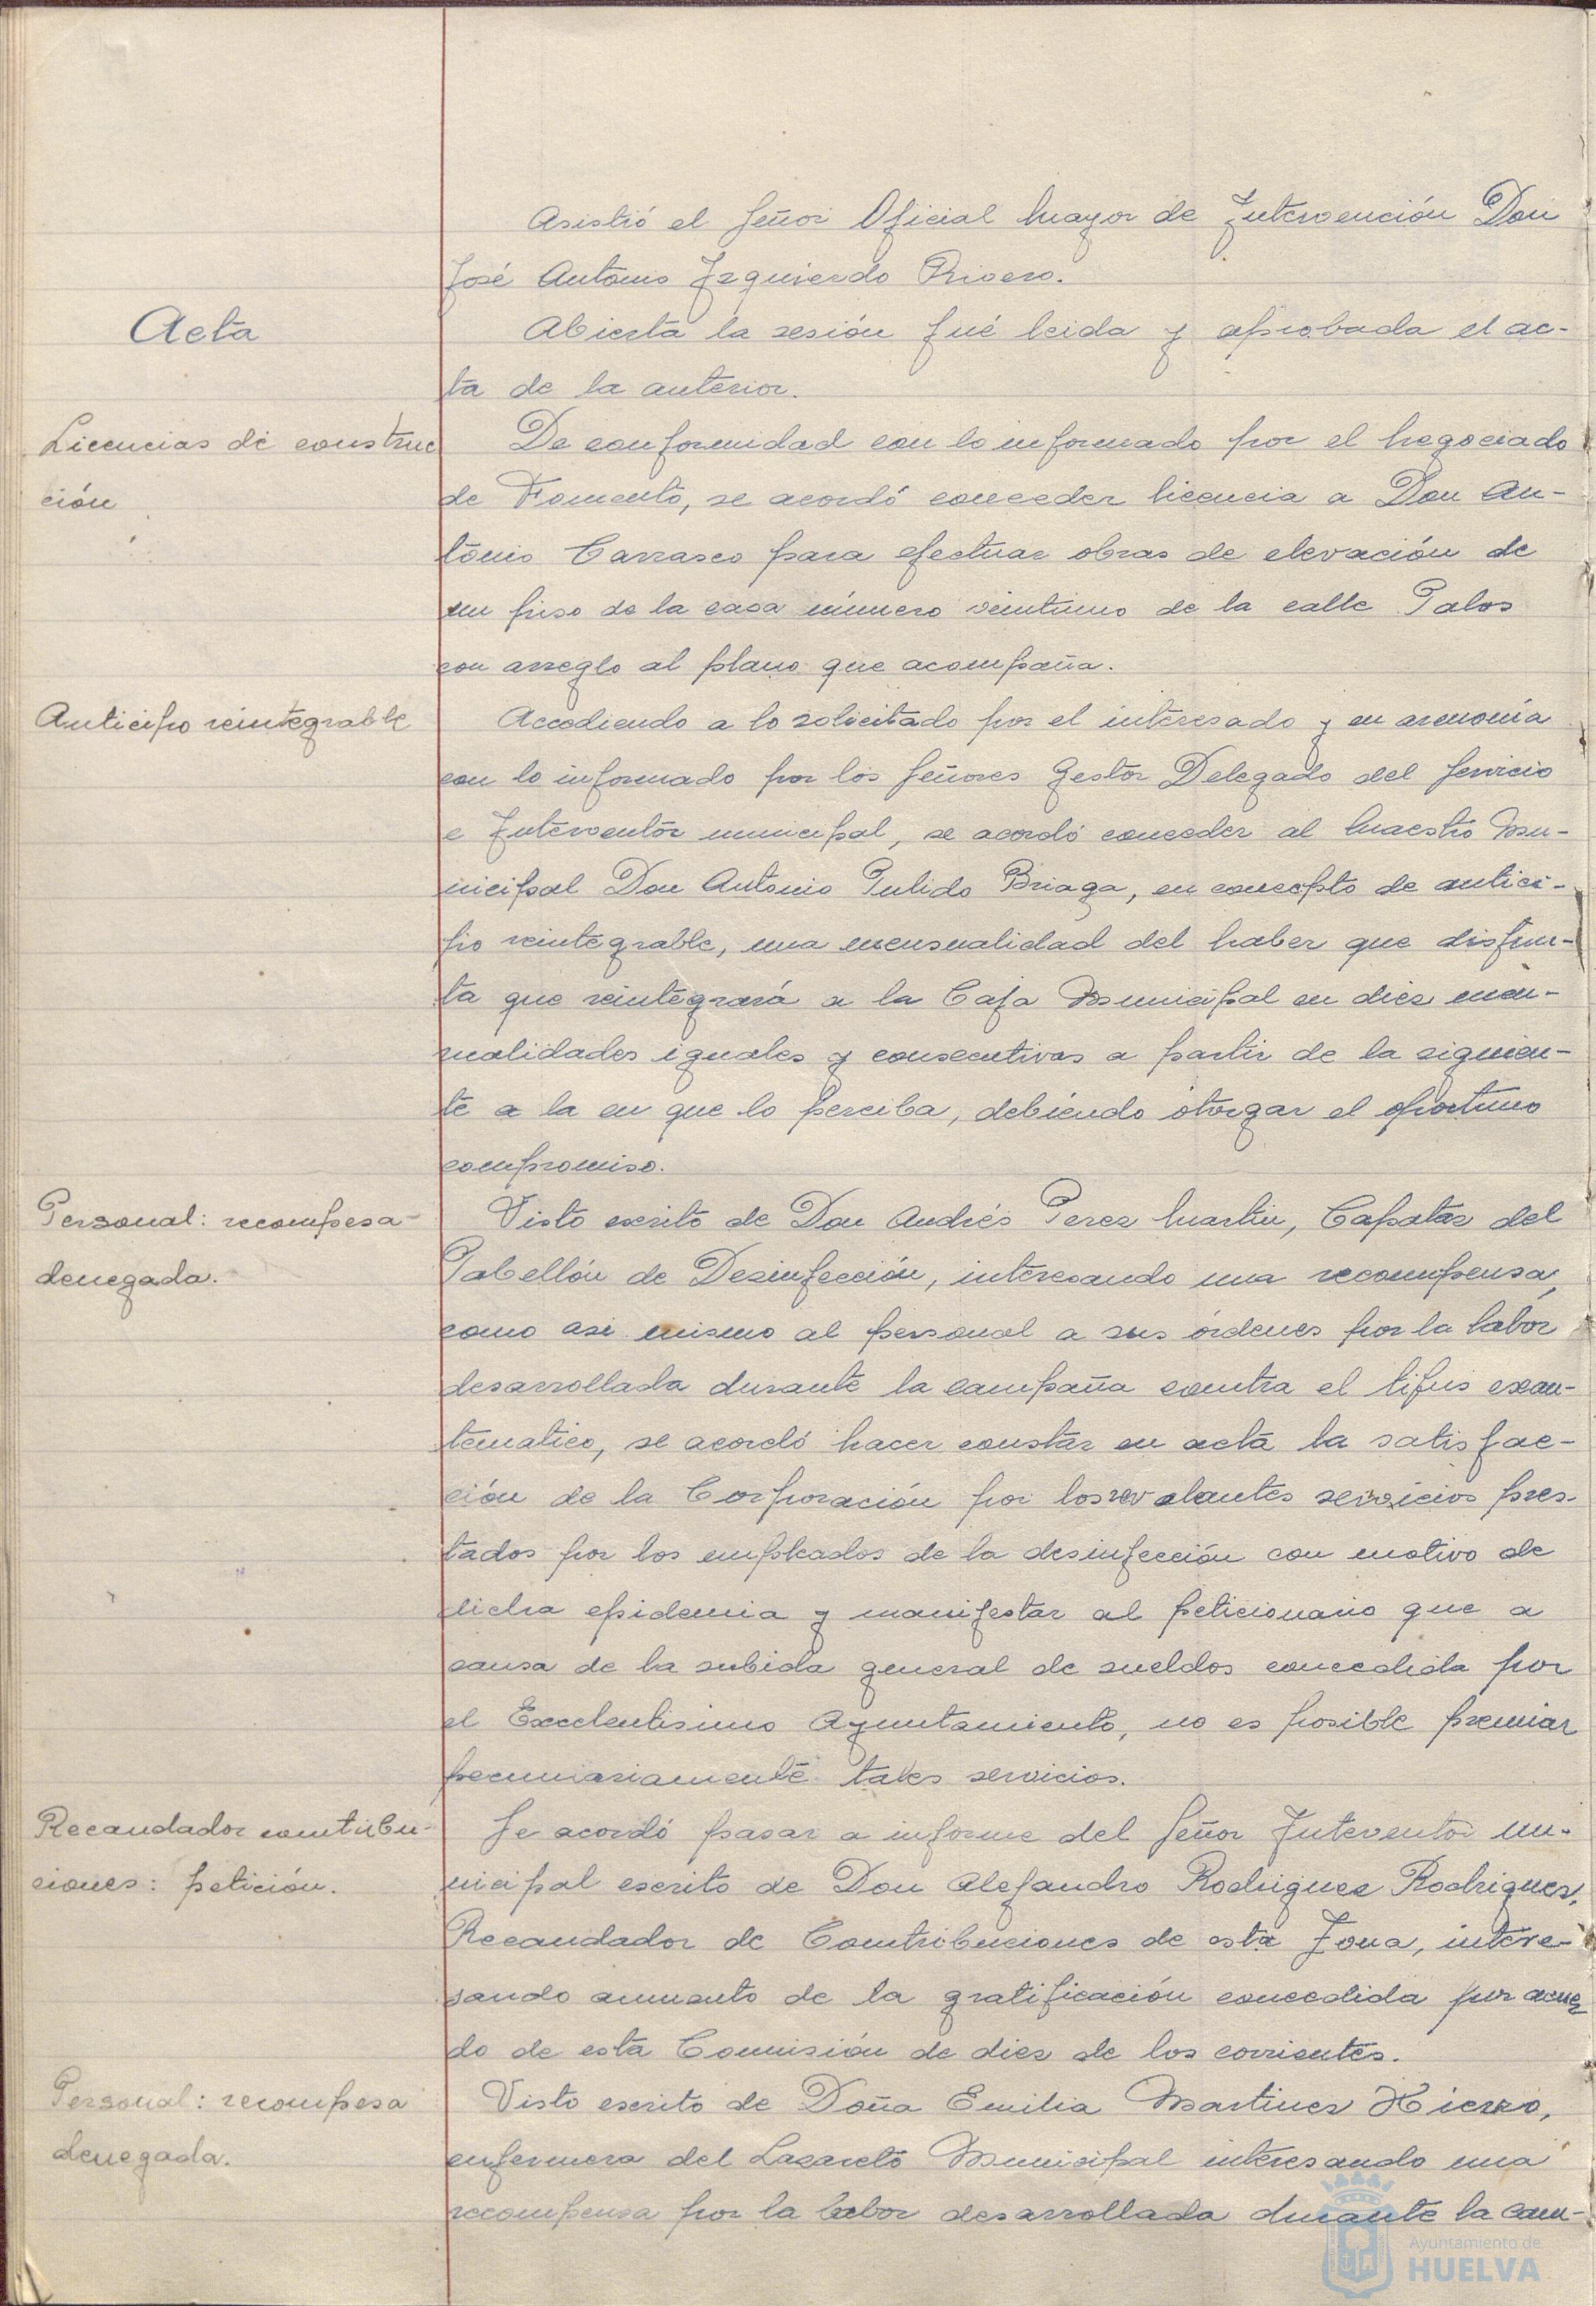 Asistió el Señor Oficial Mayor de Intervención Don
José Antonio Izquierdo Rivero.
Acta
Abierta la sesión fué leida y aprobada el ac-
ta de la anterior.
Licencias de construc
ción
De conformidad con lo informado por el Negociado
de Fomento, se acordó conceder licencia a Don An-
tonio Carrasco para efectuar obras de elevación de
un piso de la casa número veintiuno de la calle Palos
con arreglo al plano que acompaña.
Anticipo reintegrable
Accediendo a lo solicitado por el interesado y en armonía
con lo informado por los Señores Gestor Delegado del Servicio
e Interventor municipal, se acordó conceder al Maestro Mu-
nicipal Don Antonio Pulido Briaga, en concepto de antici-
pio reintegrable, una mensualidad del haber que disfru-
ta que reintegrará a la Caja Municipal en diez men-
sualidades iguales y consecutivas a partir de la siguien-
te a la en que lo perciba, debiendo otorgar el oportuno
compromiso.
Personal: recompesa
denegada.
Visto escrito de Don Andrés Perez Martin, Capataz del
Pabellón de Desinfección, interesando una recompensa,
como asi mismo al personal a sus órdenes por la labor
desarrollada durante la campaña contra el tifus exan-
tematico, se acordó hacer constar en acta la satisfac-
ción de la Corporación por los revelantes servicios pres-
tados por los empleados de la desinfección con motivo de
dicha epidemia y manifestar al peticionario que a
causa de la subida general de sueldos concedida por
el Excelentisimo Ayuntamiento, no es posible premiar
pecuniariamente tales servicios.
Recaudador contribu-
ciones: petición.
Se acordó pasar a informe del Señor Inteventor mu-
nicipal escrito de Don Alejandro Rodriguez Rodriguez,
Recaudador de Contribuciones de esta Zona, intere-
sando aumento de la gratificación concedida por acuer
do de esta Comisión de diez de los corrientes.
Personal: recompesa
denegada.
Visto escrito de Doña Emilia Martinez Hierro,
enfermera del Lazareto Municipal interesando una
recompensa por la labor desarrollada durante la cam-
Ayuntamiento de
HUELVA